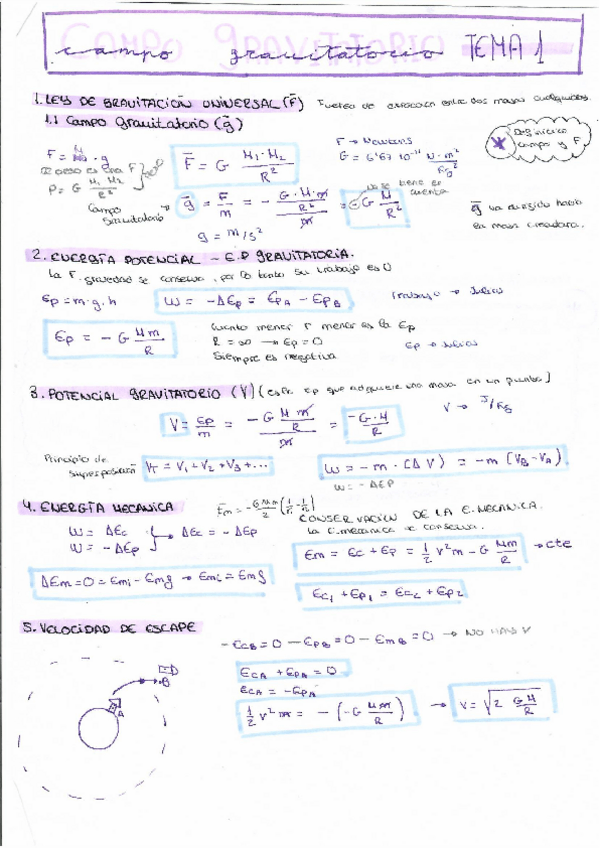 campo gravitatorio TEMA 1
1. LEY DE GRAVITACIÓN UNIVERSAL (F̄) Fuerza de atracción entre dos masas cualesquiera.
1.1 Campo gravitatorio (ḡ)
F → Newtons
G = 6'67 10⁻¹¹ N·m²/Kg²
F̄ = G M₁·M₂/R²
P = G M₁ M₂/R²
Campo gravitatorio
ḡ = F̄/m = - G·M·m/R²/m = - G M/R²
no se tiene en cuenta
g = m/s²
Definición campo y F
ḡ va dirigido hacia
la masa creadora.
2. ENERGÍA POTENCIAL - E.P GRAVITATORIA.
la F. gravedad se conserva, por lo tanto su trabajo es 0
Ep = m·g·h
W = -ΔEp = EpA - EpB
Trabajo → Julios
Ep = - G Mm/R
Cuanto menor r menor es la Ep
R = ∞ → Ep = 0
Siempre es negativa
Ep → Julios
3. POTENCIAL GRAVITATORIO (V) (es la Ep que adquiere una masa en un punto)
V = Ep/m = -G M m/R/m = -G·M/R
V → J/Kg
Principio de superposición
VT = V₁ + V₂ + V₃ + ...
W = -m · (ΔV) = -m (VB - VA)
W = -ΔEP
4. ENERGÍA MECANICA
CONSERVACIÓN DE LA E. MECANICA.
la E. mecanica se conserva.
W = ΔEc
W = -ΔEp
ΔEc = -ΔEp
Em = Ec + Ep = 1/2 v² m - G Mm/R → cte
ΔEm = 0 = Emi - Emf → Emi = Emf
Ec₁ + Ep₁ = Ec₂ + Ep₂
5. VELOCIDAD DE ESCAPE
- EcB = 0 - EpB = 0 - EmB = 0 → NO HAY V
EcA + EpA = 0
EcA = -EpA
1/2 v² m = - (-G Mm/R) → v = √2 GM/R
B
A